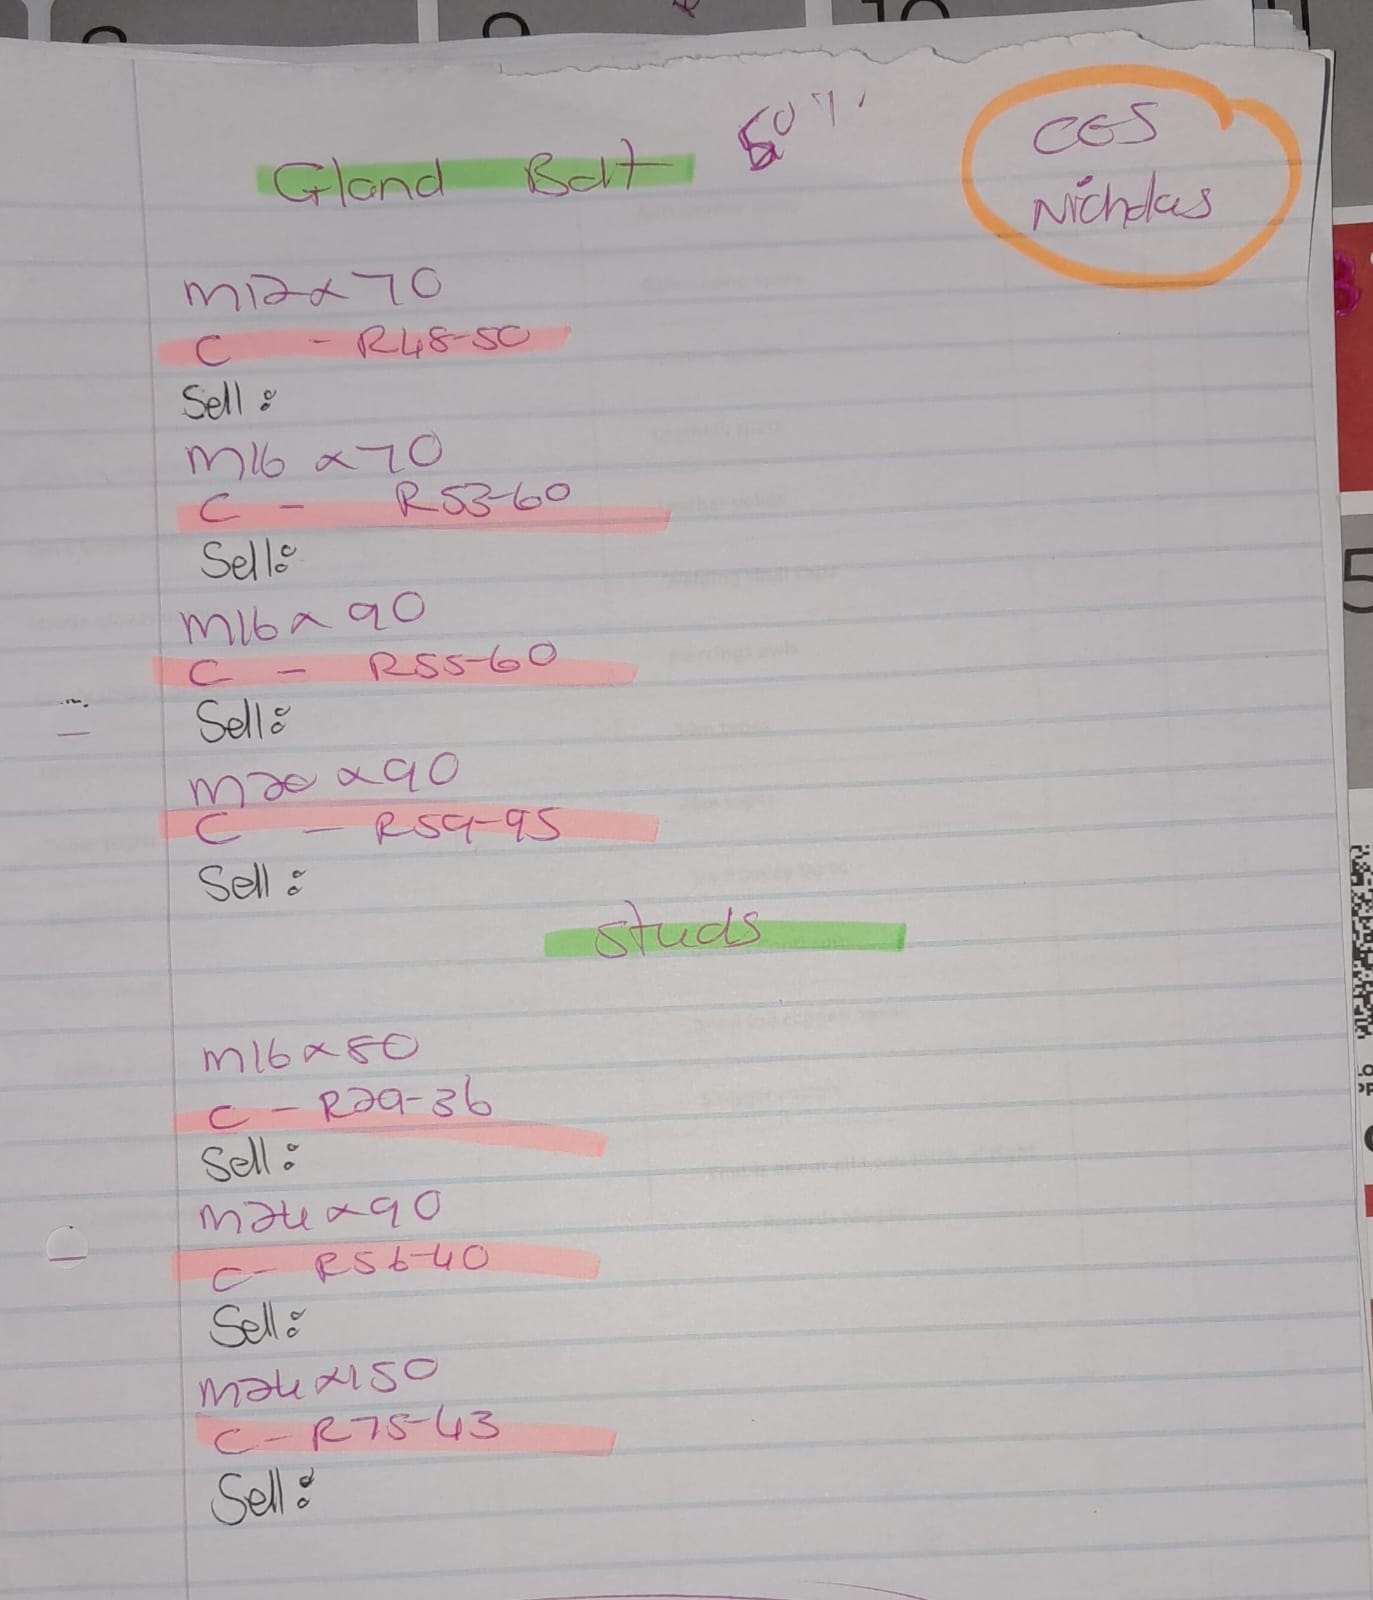 Gland Bolt 50%
CGS
Nicholas
M12x70
C - R48-50
Sell :
M16 x70
C - R53-60
Sell:
M16x 90
C - R55-60
Sell:
M20 x90
C - R59-95
Sell :
Studs
M16x80
C - R29-36
Sell :
M24x90
C- R56-40
Sell:
M24x150
C- R75-43
Sell:
5